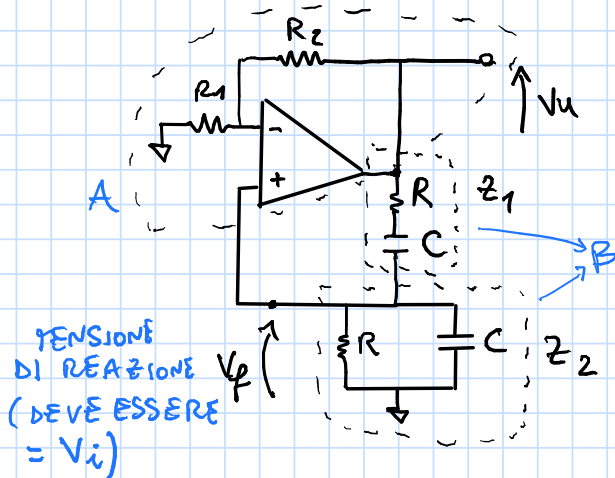 R2
R1
Vu
-
+
A
R
Z1
C
B
TENSIONE
DI REAZIONE
(DEVE ESSERE
= Vi)
Vf
R
C
Z2